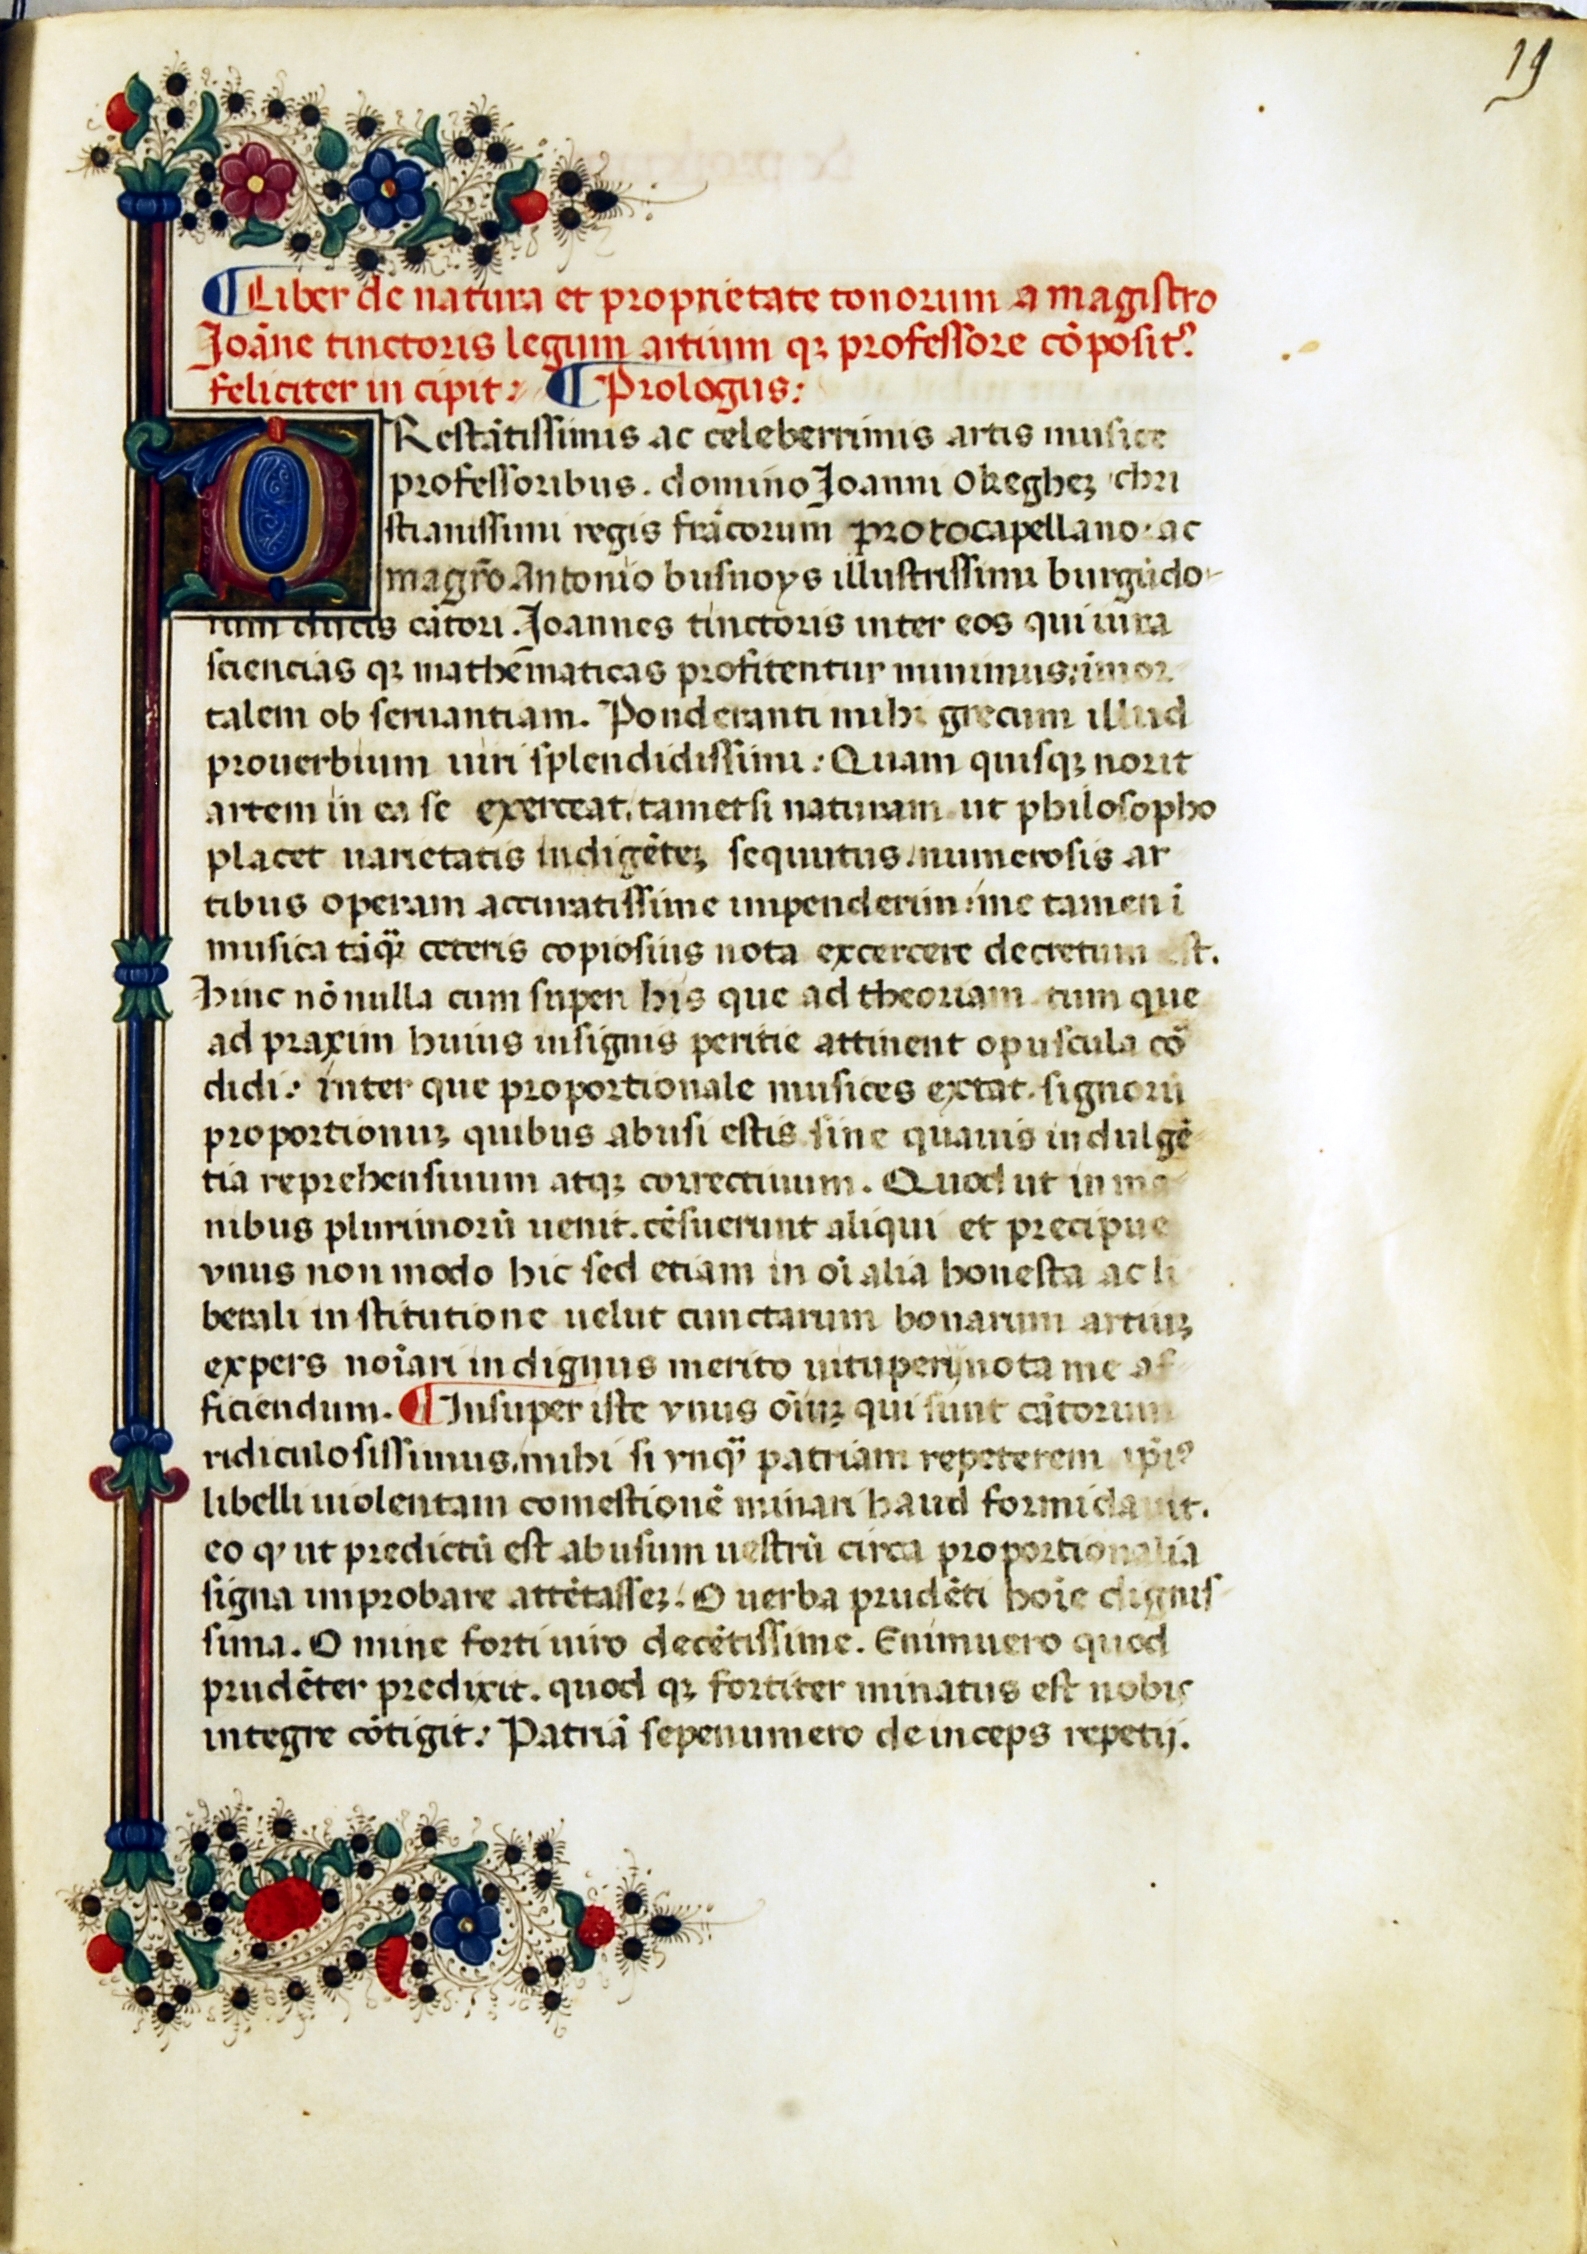 19
¶ Liber de natura et proprietate tonorum a magistro
Joāne tinctoris legum artium qꝫ professore cōposit᷒
feliciter in cipit: ¶ Prologus:
PRestātissimis ac celeberrimis artis musice
professoribus. domino Joanni okegheꝫ chri
stianissimi regis frācorum protocapellano. ac
magr̄o Antonio busnoys illustrissimi burgūdo
rum ducis cātori. Joannes tinctoris inter eos qui iura
sciencias qꝫ mathēmaticas profitentur minimus: imor
talem ob seruantiam. Ponderanti mihi grecum illud
prouerbium uiri splendidissimi: Quam quisqꝫ norit
artem in ea se exerceat, tametsi naturam ut philosopho
placet uarietatis indigēteꝫ sequutus, numerosis ar
tibus operam accuratissime impenderim: me tamen ī
musica tāqꝫ̄ ceteris copiosius nota excercere decretum est.
hinc nōnulla cum super his que ad theoriam tum que
ad praxim huius insignis peritie attinent opuscula cō
didi: inter que proportionale musices extat. signorū
proportionuꝫ quibus abusi estis sine quauis indulgē
tia reprehensiuum atqꝫ correctiuum. Quod ut in ma
nibus plurimorū uenit. cēsuerunt aliqui et precipue
vnus non modo hic sed etiam in oī alia honesta ac li
berali in stitutione uelut cunctarum bonarum artiuꝫ
expers noīari indignus merito uituperij nota me af
ficiendum. ¶ Insuper iste vnus oīuꝫ qui sunt cātorum
ridiculosissimus, mihi si vnq̄ patriam repeterem ipī᷒
libelli uiolentam comestionē minari haud formidauit.
eo ꝙ ut predictū est abusum uestrū circa proportionalia
signa improbare attētasseꝫ. O uerba prudēti hoīe dignis
sima. O mine forti uiro decētissime. Enimuero quod
prudēter predixit. quod qꝫ fortiter minatus est nobis
integre cōtigit: Patriā sepenumero deinceps repetij.